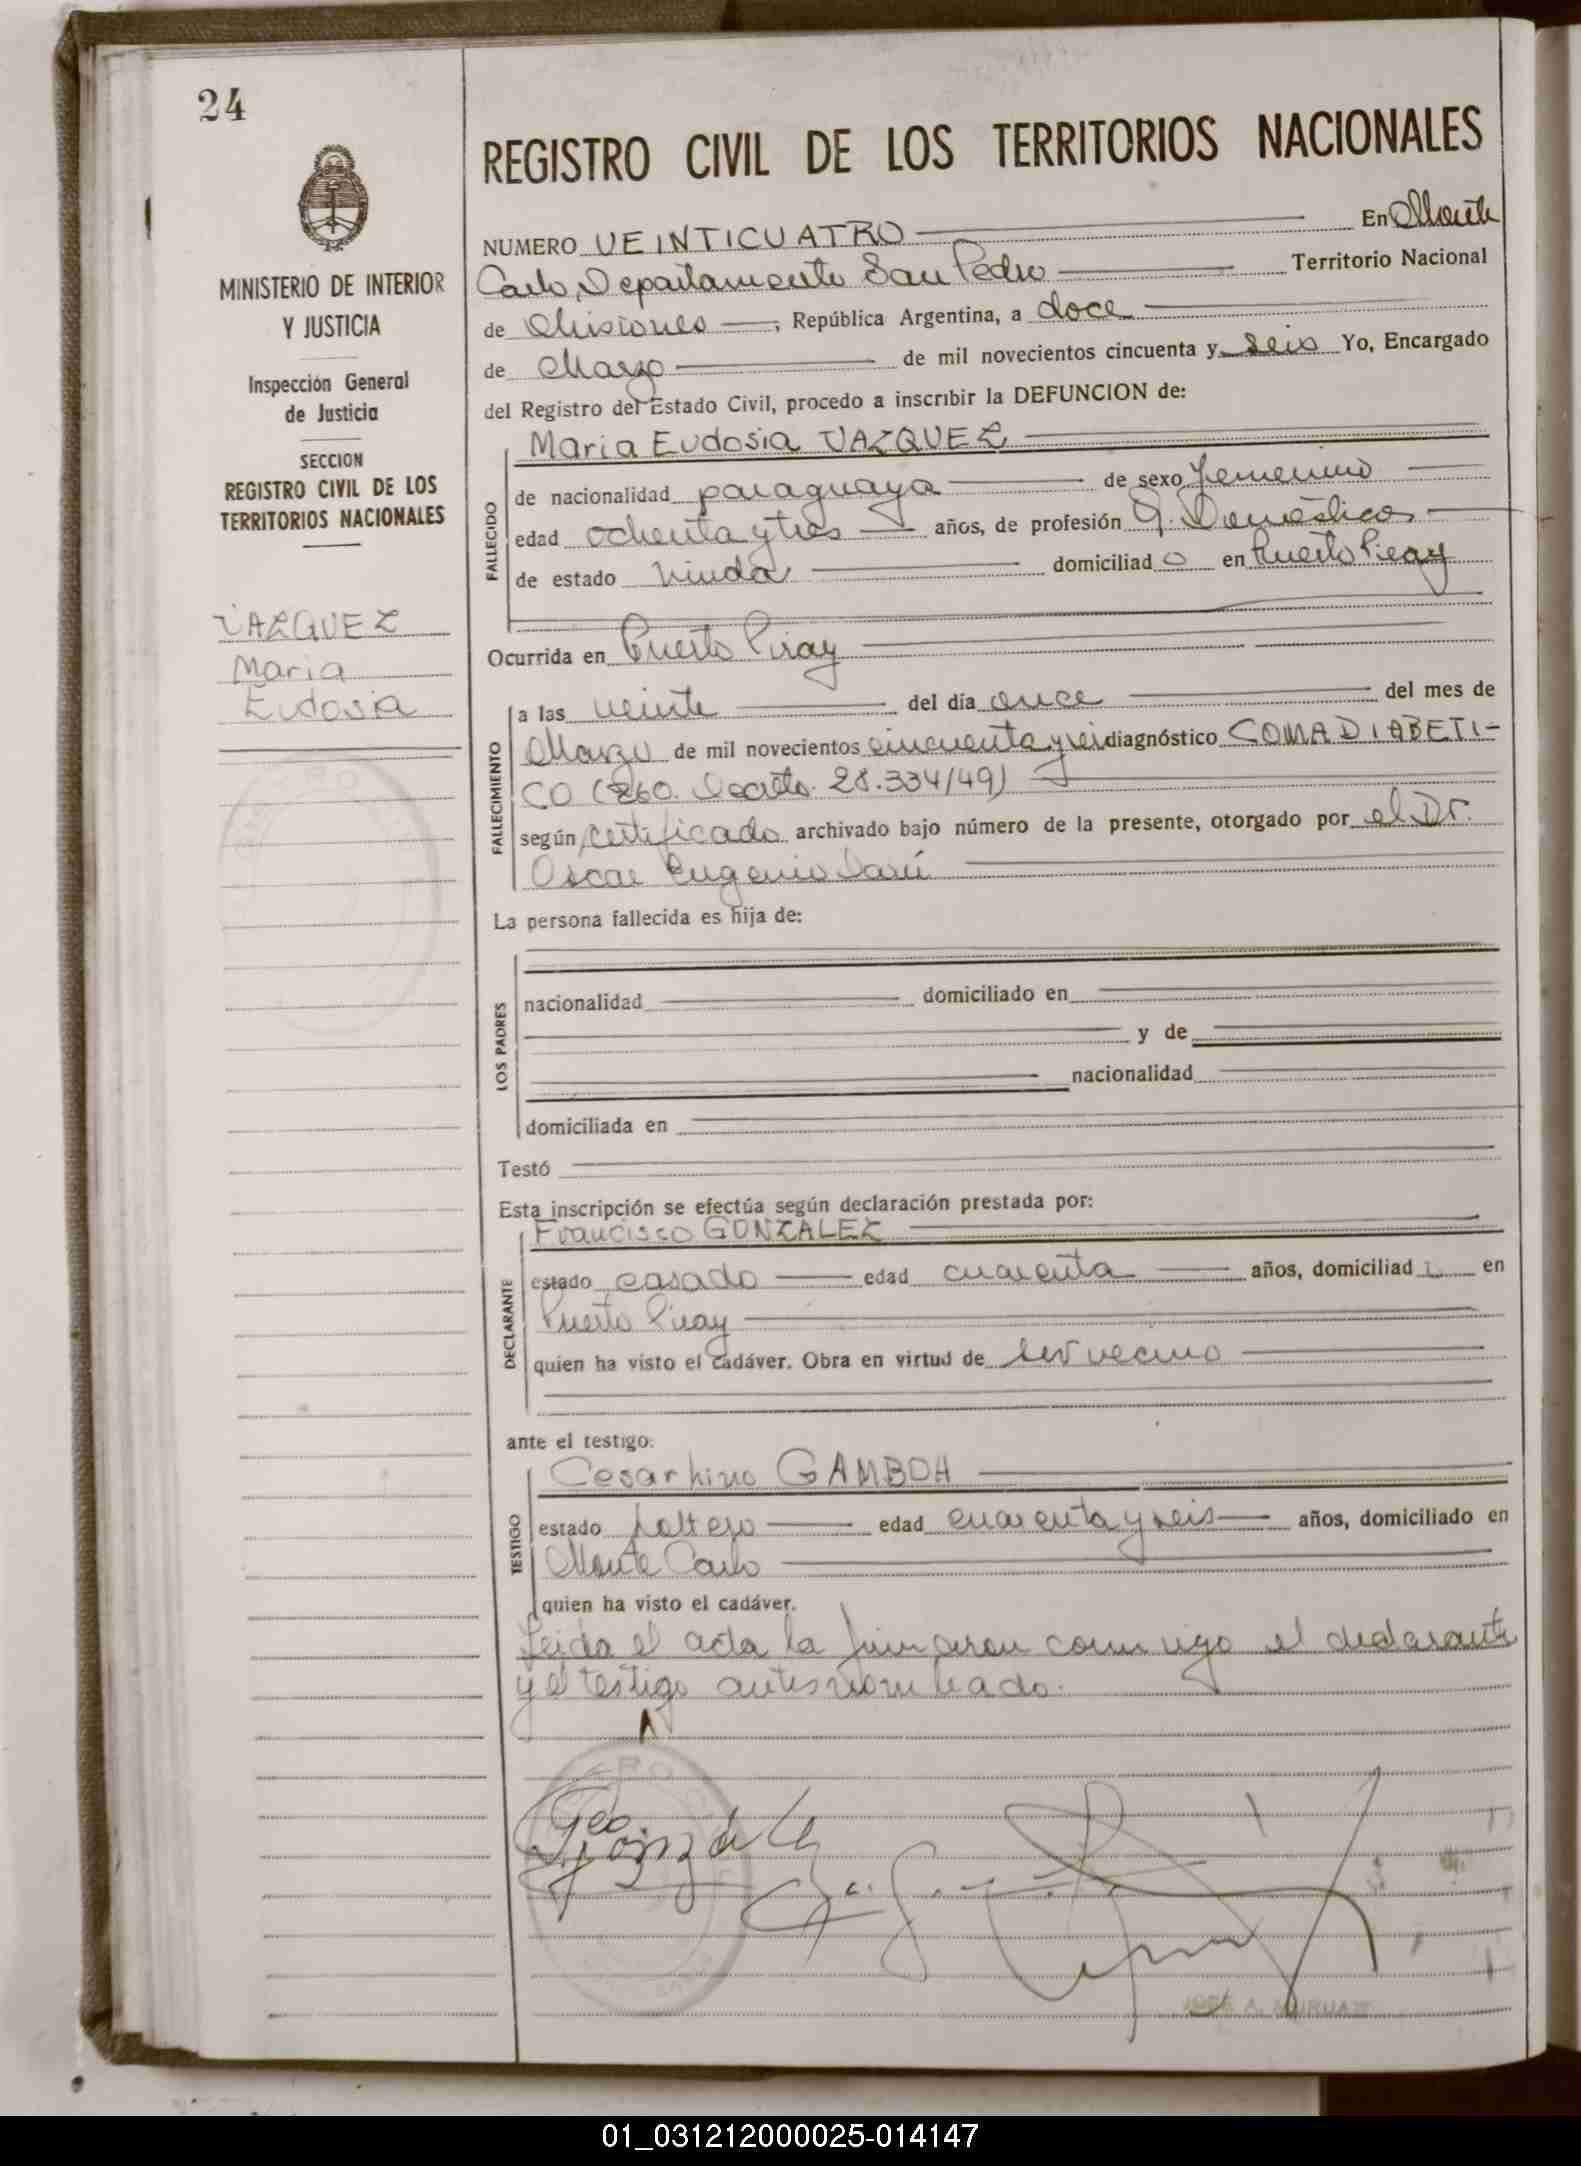 24
REGISTRO CIVIL DE LOS TERRITORIOS NACIONALES
MINISTERIO DE INTERIOR
Y JUSTICIA
Inspección General
de Justicia
SECCION
REGISTRO CIVIL DE LOS
TERRITORIOS NACIONALES
VAZQUEZ
Maria
Eudosia
NUMERO VEINTICUATRO En Monte
Carlo, Departamento San Pedro Territorio Nacional
de Misiones, República Argentina, a doce
de Marzo de mil novecientos cincuenta y seis Yo, Encargado
del Registro del Estado Civil, procedo a inscribir la DEFUNCION de:
FALLECIDO
Maria Eudosia VAZQUEZ
de nacionalidad paraguaya de sexo femenino
edad ochenta y tres años, de profesión Q. Domésticos
de estado viuda domiciliado en Puerto Piray
Ocurrida en Puerto Piray
FALLECIMIENTO
a las veinte del día once del mes de
Marzo de mil novecientos cincuenta y seis diagnóstico COMA DIABETI-
CO (260. Decreto. 28.334/49)
según certificado archivado bajo número de la presente, otorgado por el Dr.
Oscar Eugenio Darú
La persona fallecida es hija de:
LOS PADRES
nacionalidad domiciliado en
y de
nacionalidad
domiciliada en
Testó
Esta inscripción se efectúa según declaración prestada por:
DECLARANTE
Francisco GONZALEZ
estado casado edad cuarenta años, domiciliad en
Puerto Piray
quien ha visto el cadáver. Obra en virtud de ser vecino
ante el testigo:
TESTIGO
Cesarhino GAMBOA
estado soltero edad cuarenta y seis años, domiciliado en
Monte Carlo
quien ha visto el cadáver.
Leida el acta la firmaron conmigo el declarante
y el testigo antesnombrado.
Gonzalez
JOSE A. MURUA
01_031212000025-014147